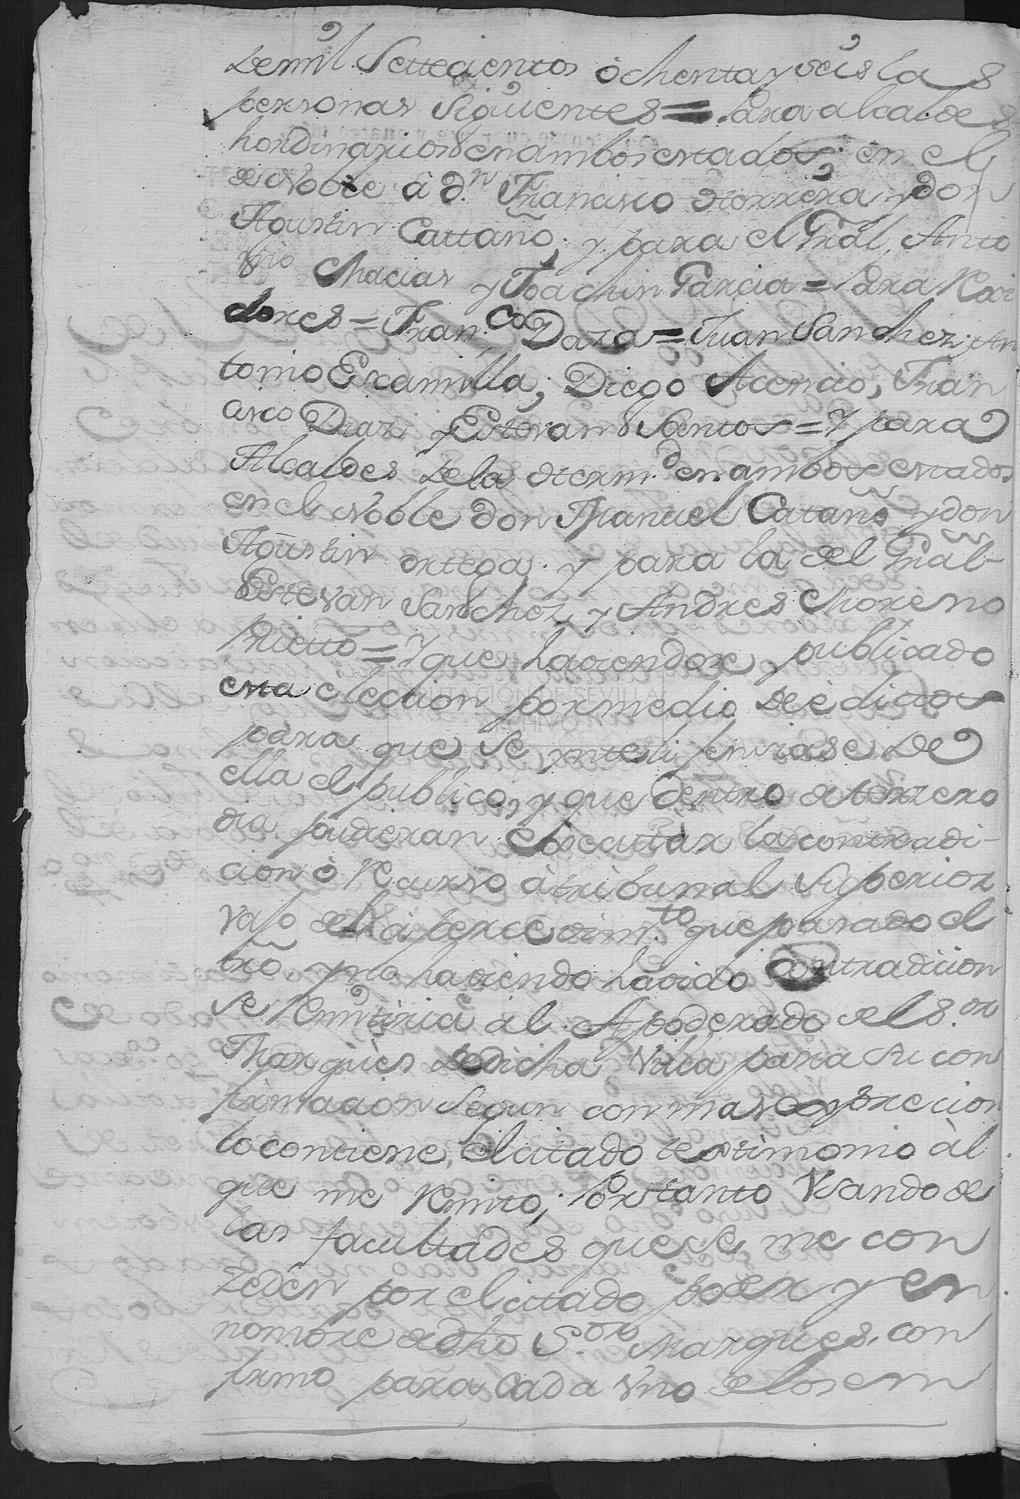 de mil Settecientos ôchenta y seis las
personas siguientes = Para alcaldes
hordinarios en ambos estados: en el
de Noble à Dn. Francisco Herrera y Don
Agustin Cattaño, y para el Gral, Anto
nio Macias y Joachin Garcia = Para Rexi
dores = Fran.co Daza = Juan Sanchez, An
tonio Escamilla, Diego Acencio, Fran
cisco Diaz y Estevan Santos = Y para
Alcaldes de la Herm.d en ambos estados
en el Noble Don Manuel Cataño y don
Agustin ortega. y para la del Gral-
Estevan Sanchez y Andres Moreno
Prietto = Y que haviendose publicado
esta eleccion por medio de êdictos
para que se ynteligenciase de
ella el publico, y que dentro de terzero
dia pudieran executtar la contradi-
cion ô Recurso â tribunal superior
vajo el apercevim.to que pasado el
tro. y no haviendo havido Contradicion
se Remitiria al Apoderado del S.or
Marques de dicha Villa para su con
firmacion segun con mas expresion
lo contiene el citado testimonio àl
que me Remito; Por tanto Usando de
las facultades que se me con
zeden por el citado poder y en
nombre de dho S.or Marques, con
firmo para cada uno de los em